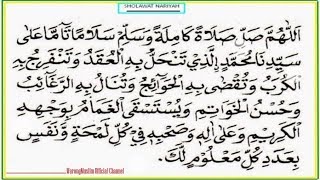 SHOLAWAT NARIYAH
اَللّٰهُمَّ صَلِّ صَلَاةً كَامِلَةً وَسَلِّمْ سَلَامًا تَامًّا عَلَى
سَيِّدِنَا مُحَمَّدٍ الَّذِيْ تَنْحَلُّ بِهِ الْعُقَدُ وَتَنْفَرِجُ بِهِ
الْكُرَبُ وَتُقْضٰى بِهِ الْحَوَائِجُ وَتُنَالُ بِهِ الرَّغَائِبُ
وَحُسْنُ الْخَوَاتِمِ وَيُسْتَسْقَى الْغَمَامُ بِوَجْهِهِ
الْكَرِيْمِ وَعَلٰى اٰلِهِ وَصَحْبِهِ فِيْ كُلِّ لَمْحَةٍ وَنَفَسٍ
بِعَدَدِ كُلِّ مَعْلُوْمٍ لَكَ
WarungMuslim Official Channel